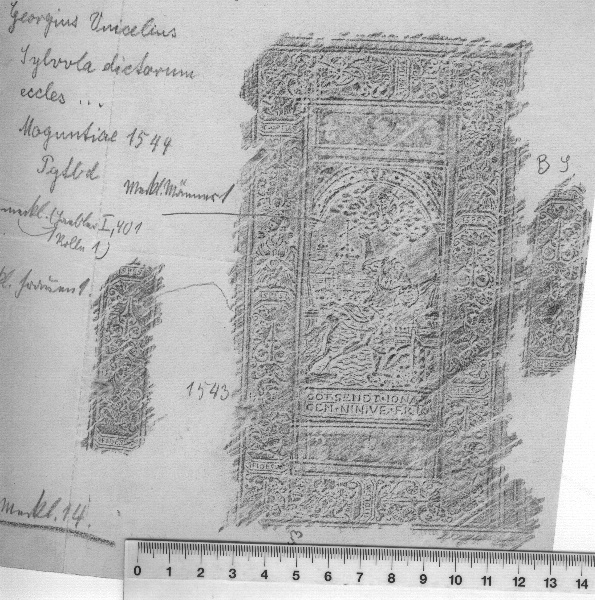 Georgius Vuicelius
Sylvvla dictorum
eccles ...
Moguntiae 1544
Pgtbd
Meckl. Männer 1
meckl. (Haebler I, 401
Rolle 1)
B S
1543
GOT SENDT IONA
GEN NINIVE
Meckl. 14.
0 1 2 3 4 5 6 7 8 9 10 11 12 13 14